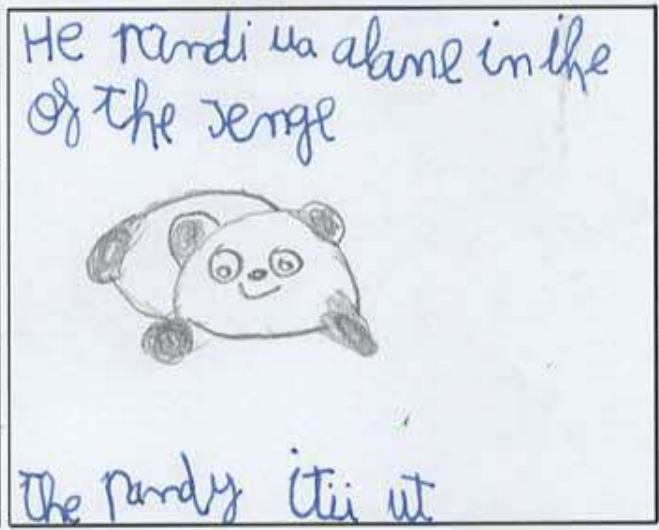 He randi ua alane in the
of the jenge
the pandy itii ut